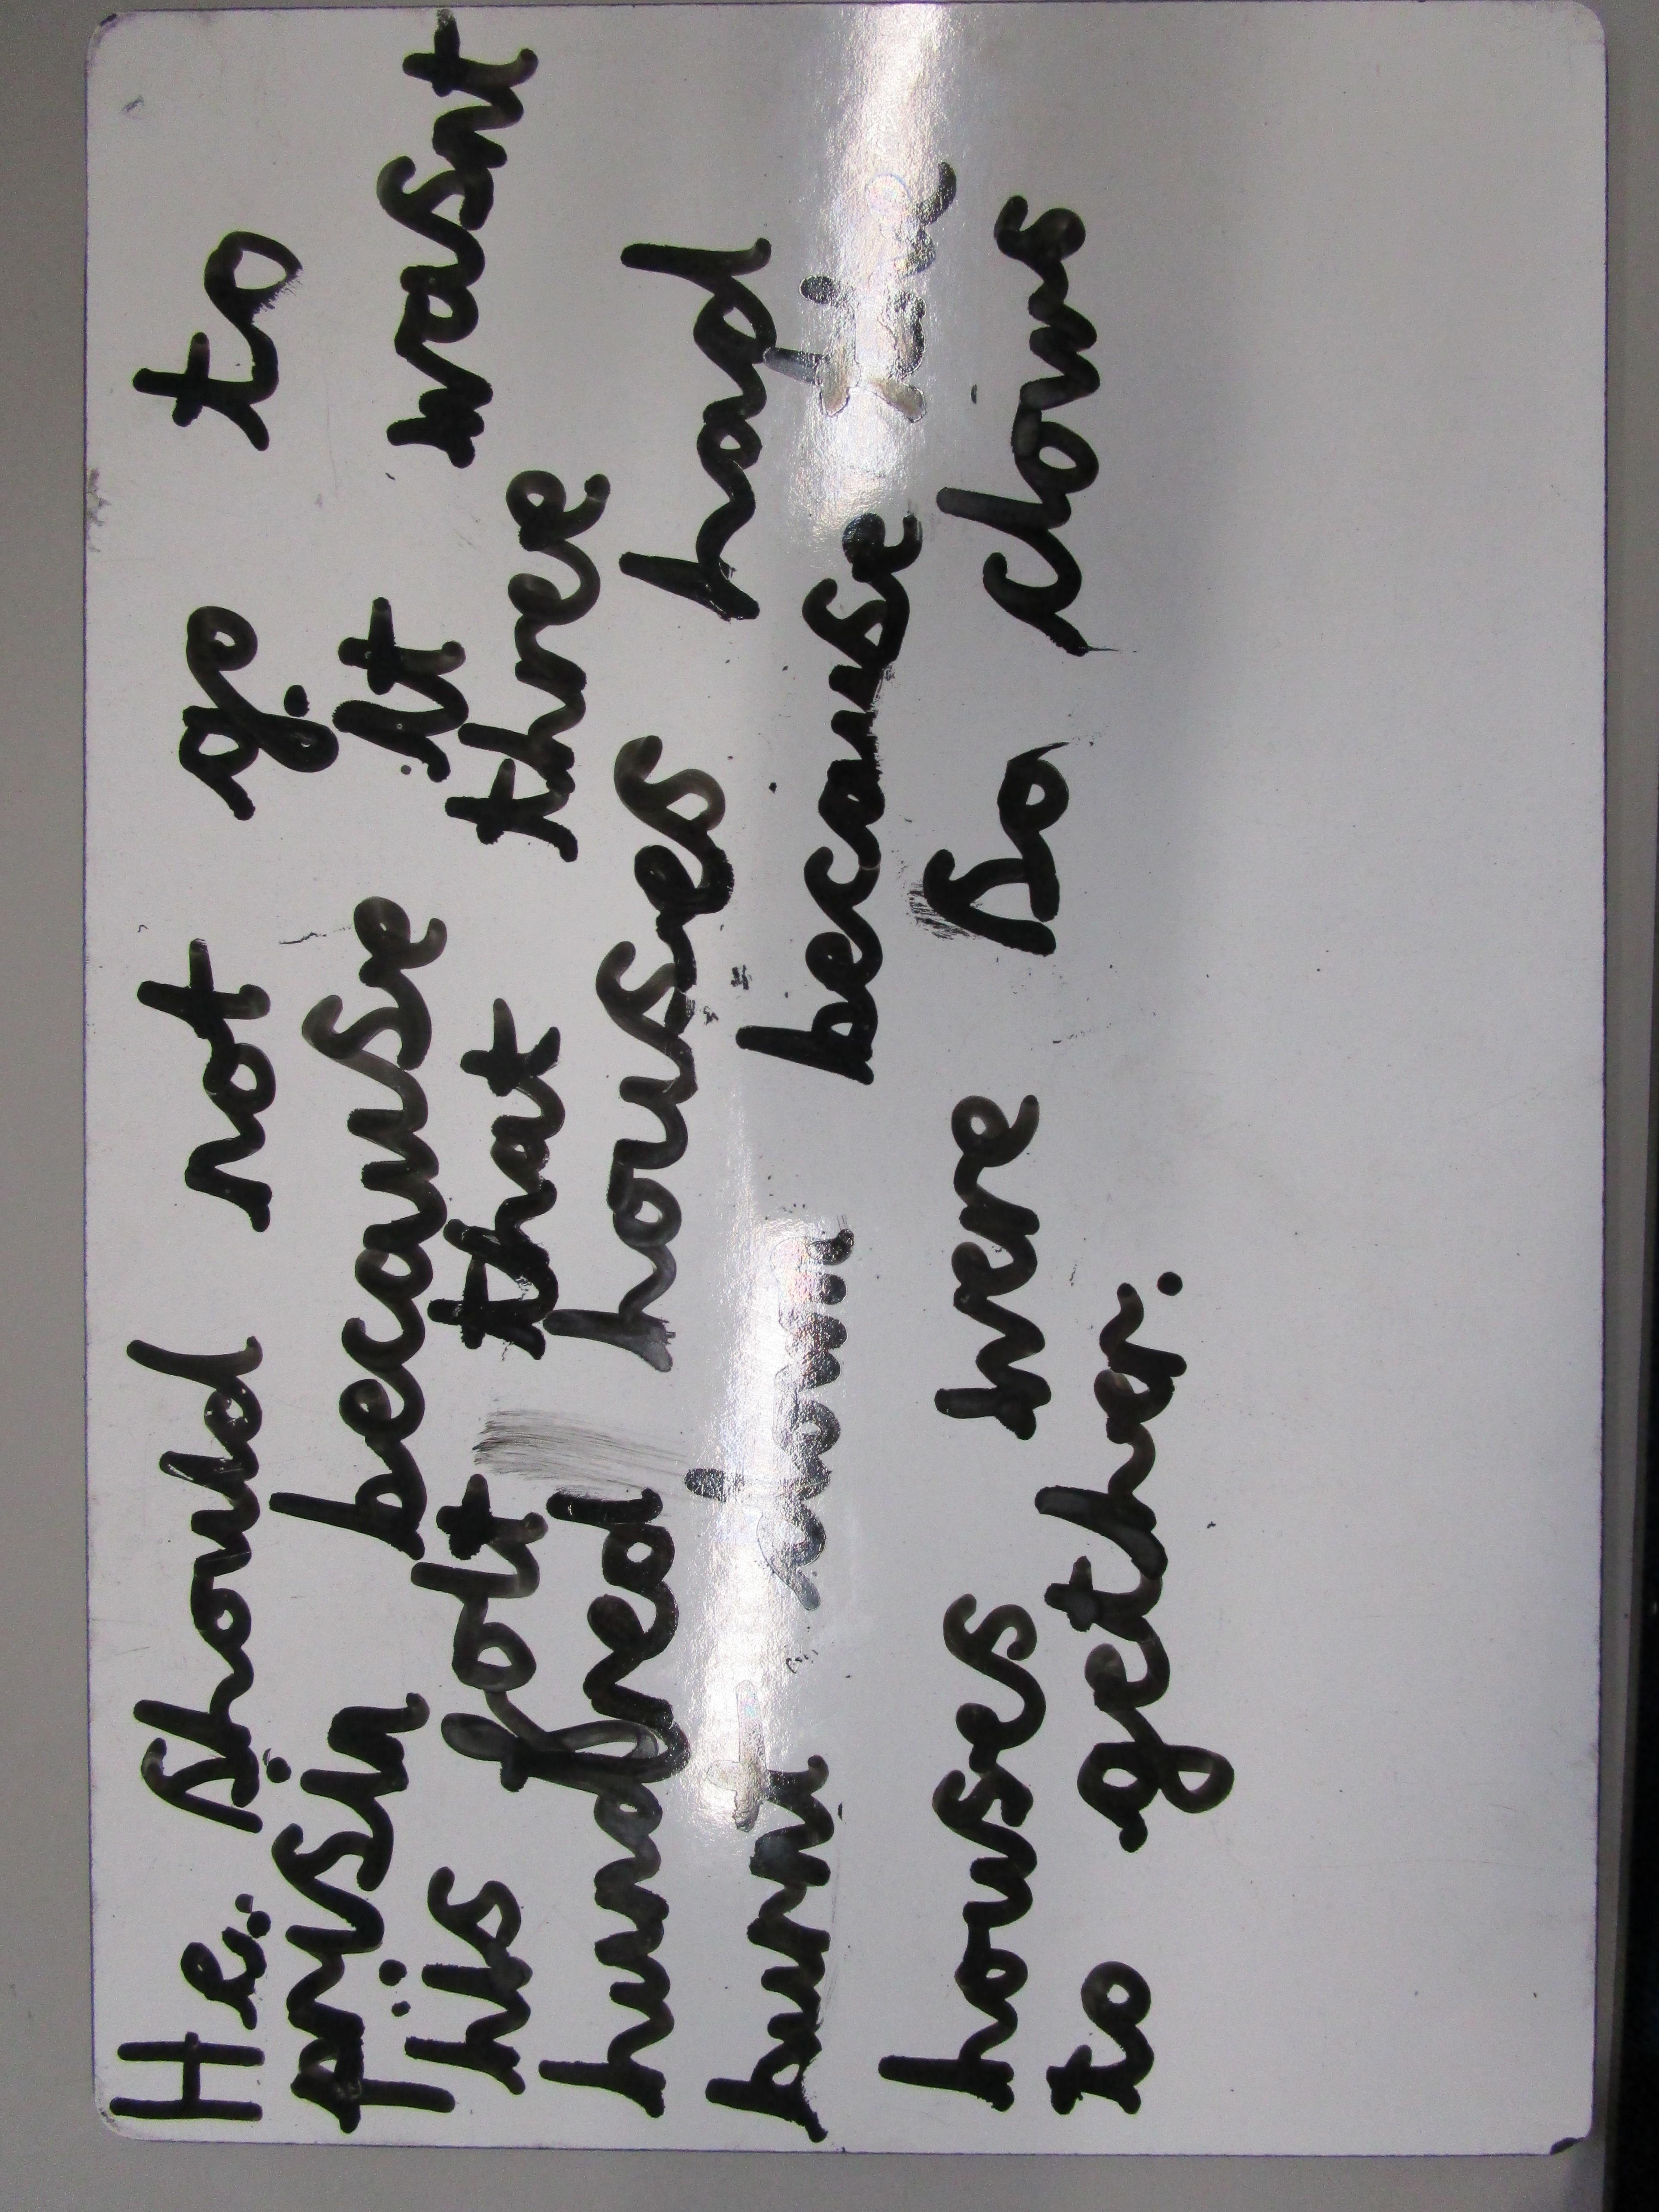 He should not go to
prisin because it wasnt
his folt that three
hundred houses had
burnt down because the
houses were so clows
to gether.